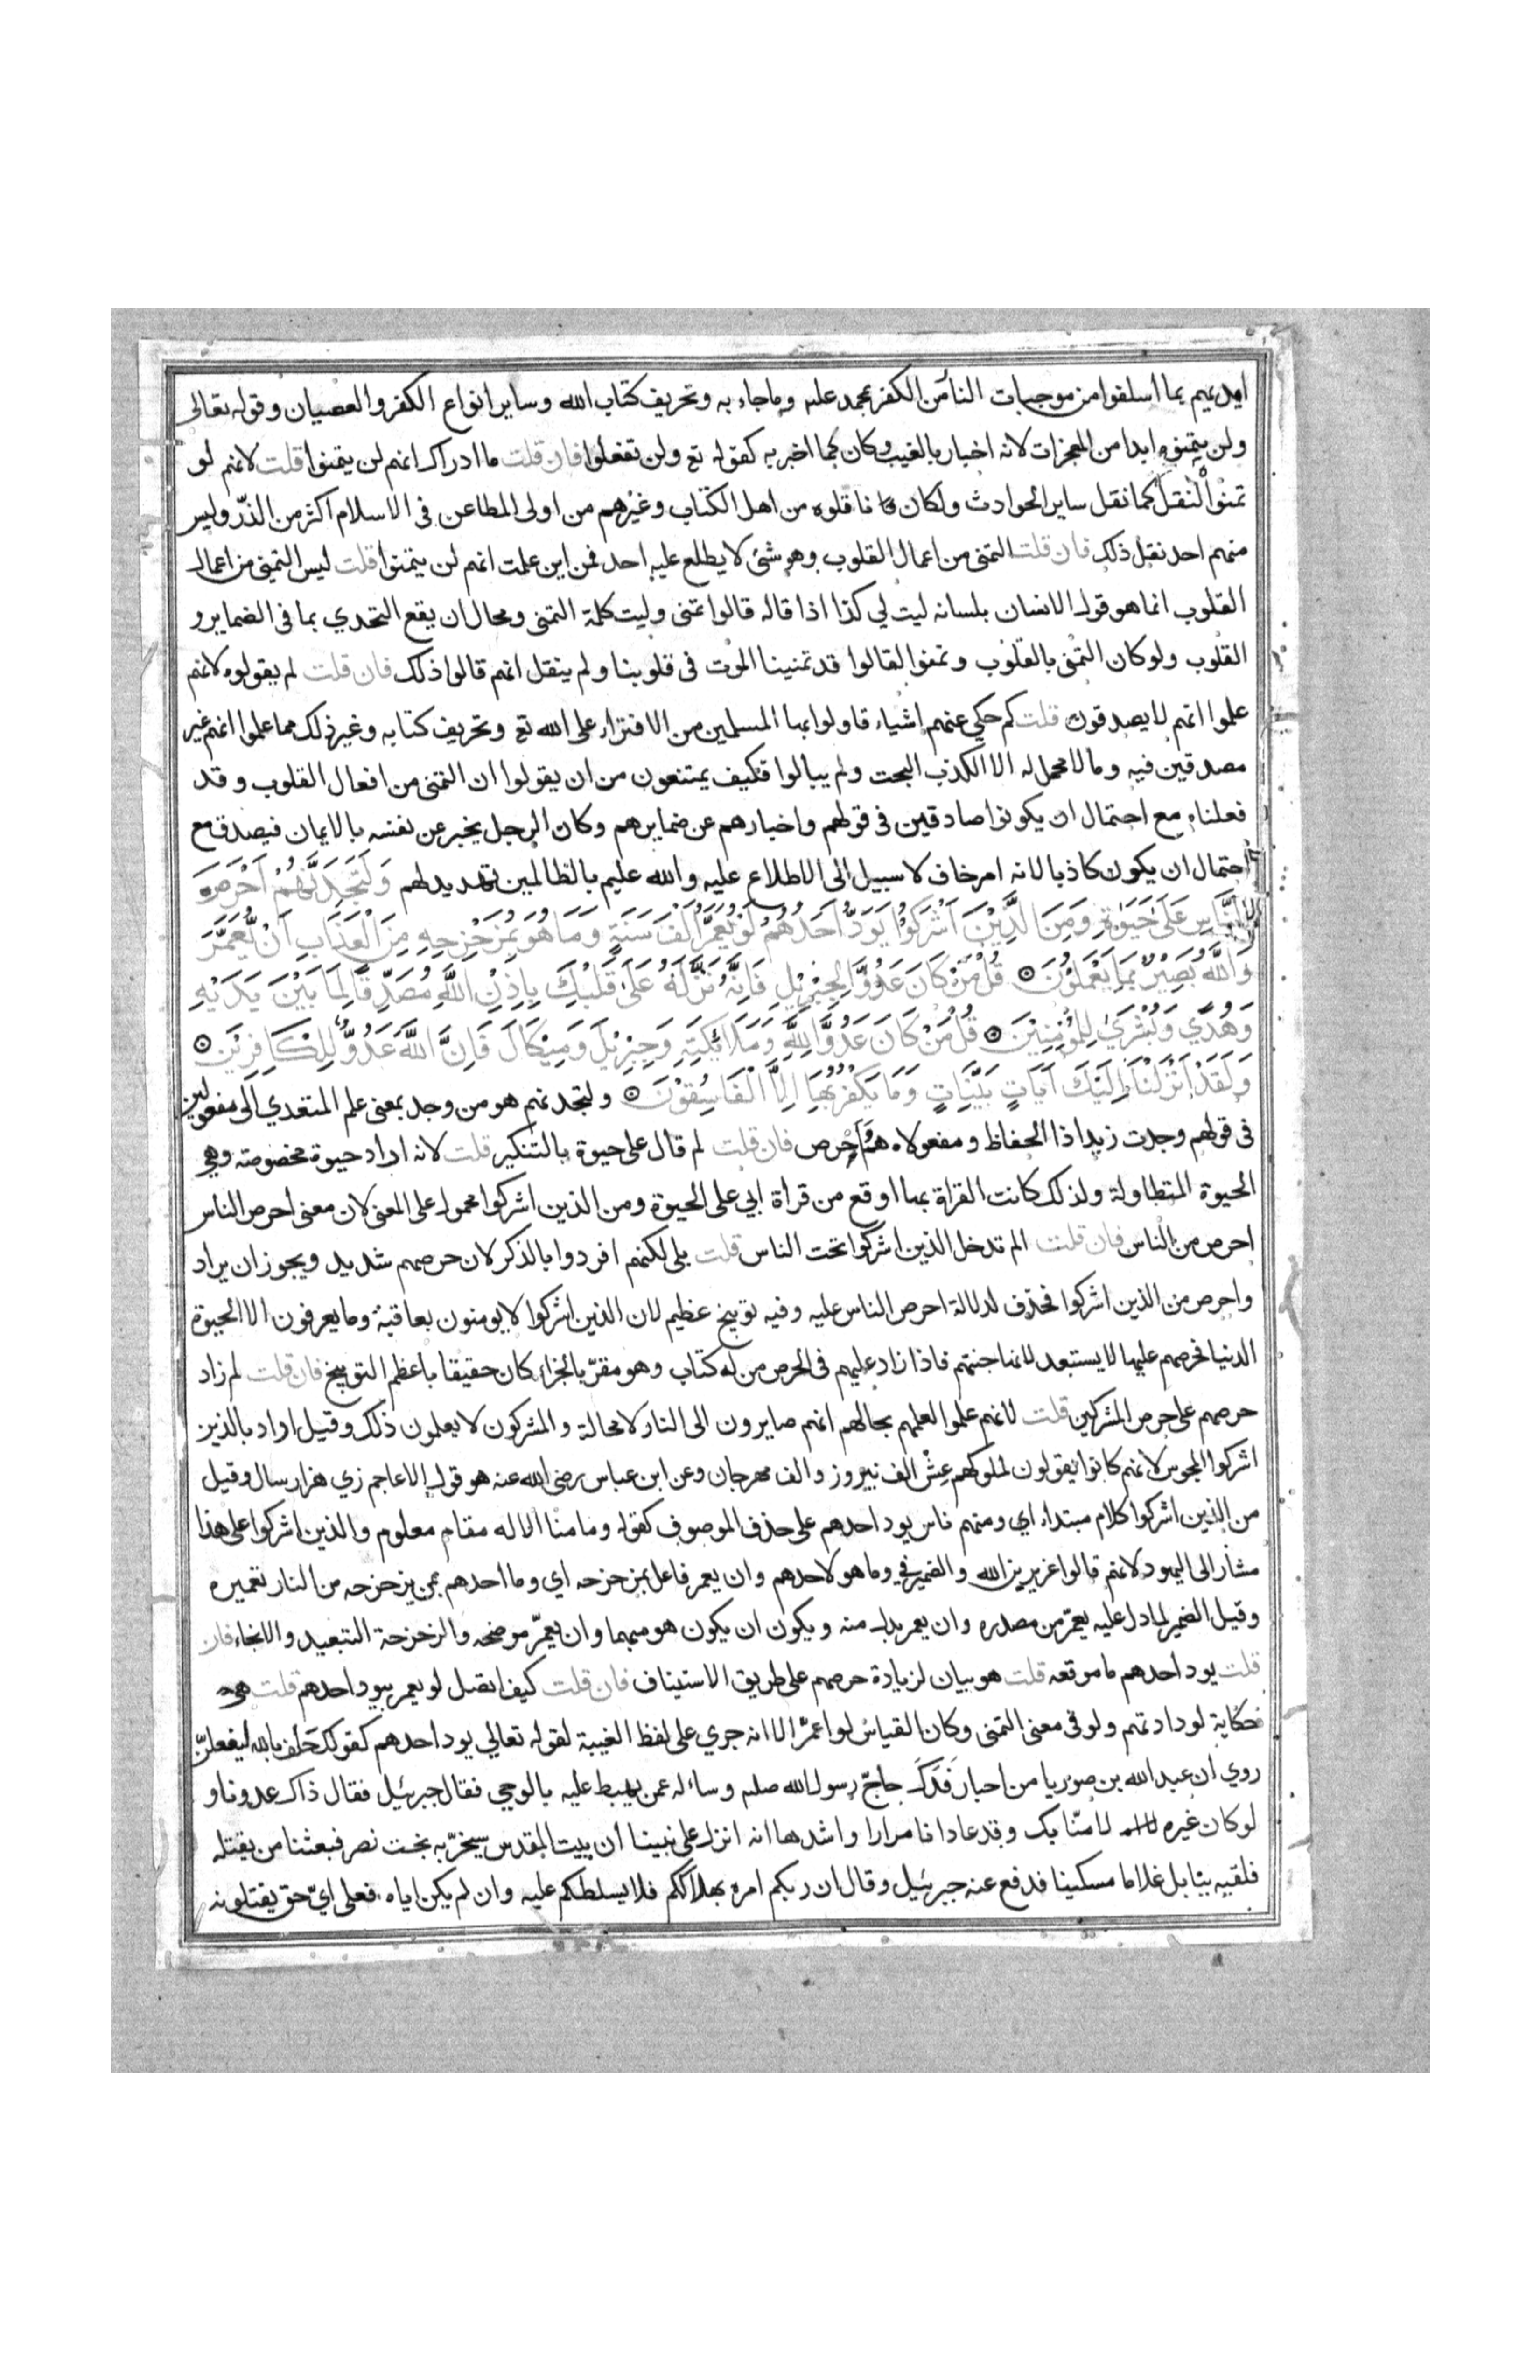 ايديهم بما اسلفوا من موجبات النار من الكفر بمحمد عليه وبما جاء به وتحريف كتاب الله وساير انواع الكفر والعصيان وقوله تعالى
ولن يتمنوه ابدا من المعجزات لانه اخبار بالغيب وكان كما اخبر به كقوله تع ولن تفعلوا فان قلت ما ادراك انهم لن يتمنوا قلت لانهم لو
تمنوا لنقل كما نقل ساير الحوادث ولكان ناقلوه من اهل الكتاب وغيرهم من اولى المطاعن فى الاسلام اكثر من الذرّ وليس
منهم احد نقل ذلك فان قلت التمنى من اعمال القلوب وهو شئ لا يطلع عليه احد فمن اين علمت انهم لن يتمنوا قلت ليس التمنى من اعمال
القلوب انما هو قول الانسان بلسانه ليت لي كذا اذا قاله قالوا تمنى وليت كلمة التمنى ومحال ان يقع التحدي بما فى الضماير و
القلوب ولو كان التمنى بالقلوب وتمنوا لقالوا قد تمنينا الموت فى قلوبنا ولم ينقل انهم قالوا ذلك فان قلت لم يقولوه لانهم
علموا انهم لا يصدقون قلت كم حكي عنهم اشياء قاولوا بها المسلمين من الافتراء على الله تع وتحريف كتابه وغير ذلك مما علموا انهم غير
مصدقين فيه وما لا محمل له الا الكذب البحت ولم يبالوا فكيف يمتنعون من ان يقولوا ان التمنى من افعال القلوب وقد
فعلناه مع احتمال ان يكونوا صادقين فى قولهم واخبارهم عن ضمايرهم وكان الرجل يخبر عن نفسه بالايمان فيصدق مع
احتمال ان يكون كاذبا لانه امر خاف لا سبيل الى الاطلاع عليه والله عليم بالظالمين تهديد لهم وَلَتَجِدَنَّهُمْ اَحْرَصَ
النَّاسِ عَلَى حَيَوٰةٍ وَمِنَ الَّذِيْنَ اَشْرَكُوْا يَوَدُّ اَحَدُهُمْ لَوْ يُعَمَّرُ اَلْفَ سَنَةٍ وَمَا هُوَ بِمُزَحْزِحِهِ مِنَ الْعَذَابِ اَنْ يُّعَمَّرَ
وَاللَّهُ بَصِيْرٌ بِمَا يَعْمَلُوْنَ ۝ قُلْ مَنْ كَانَ عَدُوًّا لِجِبْرِيْلَ فَاِنَّهُ نَزَّلَهُ عَلَى قَلْبِكَ بِاِذْنِ اللَّهِ مُصَدِّقًا لِمَا بَيْنَ يَدَيْهِ
وَهُدًي وَبُشْرَىٰ لِلْمُؤْمِنِيْنَ ۝ قُلْ مَنْ كَانَ عَدُوًّا لِلَّهِ وَمَلَائِكَتِهِ وَجِبْرِيْلَ وَمِيْكَالَ فَاِنَّ اللَّهَ عَدُوٌّ لِلْكَافِرِيْنَ ۝
وَلَقَدْ اَنْزَلْنَا اِلَيْكَ اٰيَاتٍ بَيِّنَاتٍ وَمَا يَكْفُرُ بِهَا اِلَّا الْفَاسِقُوْنَ ۝ ولتجدنهم هو من وجد بمعنى علم المتعدي الى مفعولين
فى قولهم وجدت زيدا ذا الحفاظ ومفعولاه هم احرص فان قلت لم قال على حيوة بالتنكير قلت لانه اراد حيوة مخصوصة وهي
الحيوة المتطاولة ولذلك كانت القراة بها اوقع من قراة ابي على الحيوة ومن الذين اشركوا محمول على المعنى لان معنى احرص الناس
احرص من الناس فان قلت الم تدخل الذين اشركوا تحت الناس قلت بلى لكنهم افردوا بالذكر لان حرصهم شديد ويجوز ان يراد
واحرص من الذين اشركوا فحذف لدلالة احرص الناس عليه وفيه توبيخ عظيم لان الذين اشركوا لا يومنون بعاقبة وما يعرفون الا الحيوة
الدنيا فحرصهم عليها لا يستبعد لانها جنتهم فاذا زاد عليهم فى الحرص من له كتاب وهو مقرّ بالجزاء كان حقيقا باعظم التوبيخ فان قلت لم زاد
حرصهم على حرص المشركين قلت لانهم علموا لعلمهم بحالهم انهم صايرون الى النار لا محالة والمشركون لا يعلمون ذلك وقيل اراد بالذين
اشركوا المجوس لانهم كانوا يقولون لملوكهم عِشْ الف نيروز والف مهرجان وعن ابن عباس رضى الله عنه هو قول الاعاجم زي هزار سال وقيل
من الذين اشركوا كلام مبتداء اي ومنهم ناس يود احدهم على حذف الموصوف كقوله وما منا الا له مقام معلوم والذين اشركوا على هذا
مشار الى اليهود لانهم قالوا عزير بن الله والضمير في وما هو لاحدهم وان يعمر فاعل بمزحزحه اي وما احدهم بمن يزحزحه من النار تعميره
وقيل الضمير لما دل عليه يعمّر من مصدره وان يعمر بدل منه ويكون ان يكون هو مبهما وان يعمّر موضحه والزحزحة التبعيد والانحاء فان
قلت يود احدهم ما موقعه قلت هو بيان لزيادة حرصهم على طريق الاستيناف فان قلت كيف اتصل لو يعمر بيود احدهم قلت هو
حكاية لودادتهم ولو فى معنى التمنى وكان القياس لو اعمّر الا انه جري على لفظ الغيبة لقوله تعالي يود احدهم كقولك حَلف بالله ليفعلنّ
روي ان عبد الله بن صوريا من احبار فَدَكَ حاجّ رسول الله صلم وساله عمن يهبط عليه بالوحي فقال جبرئيل فقال ذاك عدونا و
لو كان غيره لامنّا بك وقد عادانا مرارا واشدها انه انزل على نبينا ان بيت المقدس سيخرّبه بخت نصر فبعثنا من يقتله
فلقيه ببابل غلاما مسكينا فدفع عنه جبرئيل وقال ان ربكم امره بهلاككم فلا يسلطكم عليه وان لم يكن اياه فعلى ايّ حق يقتلونه